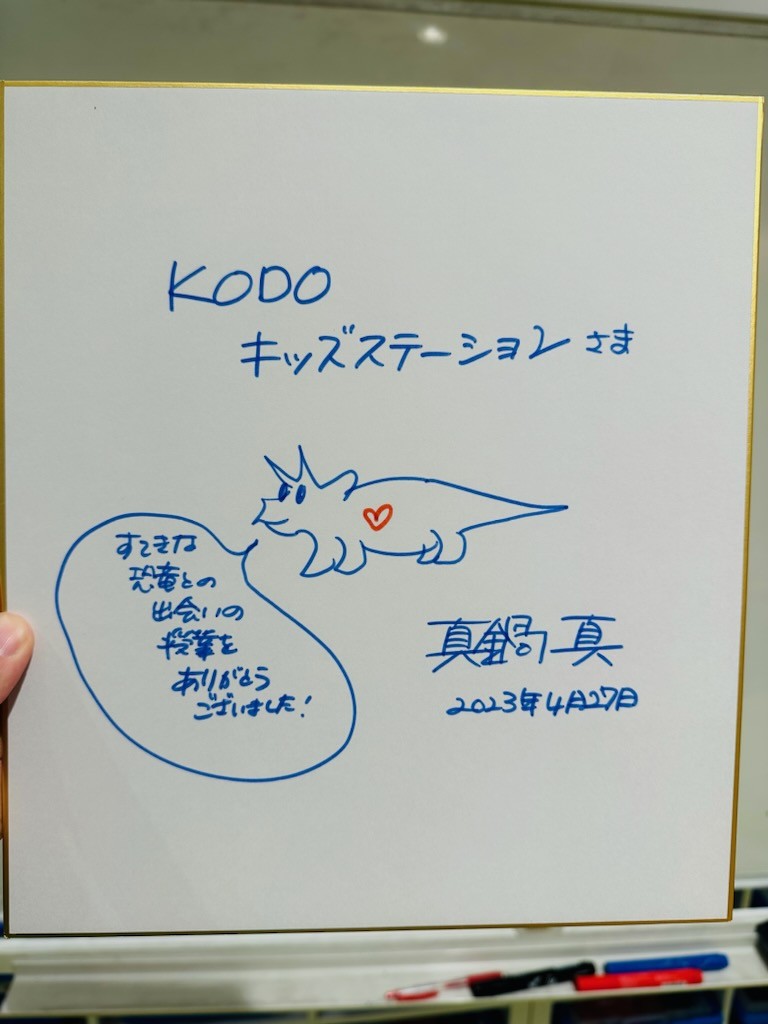 KODO
キッズステーションさま
すてきな
恐竜との
出会いの
授業を
ありがとう
ございました!
真鍋 真
2023年4月27日